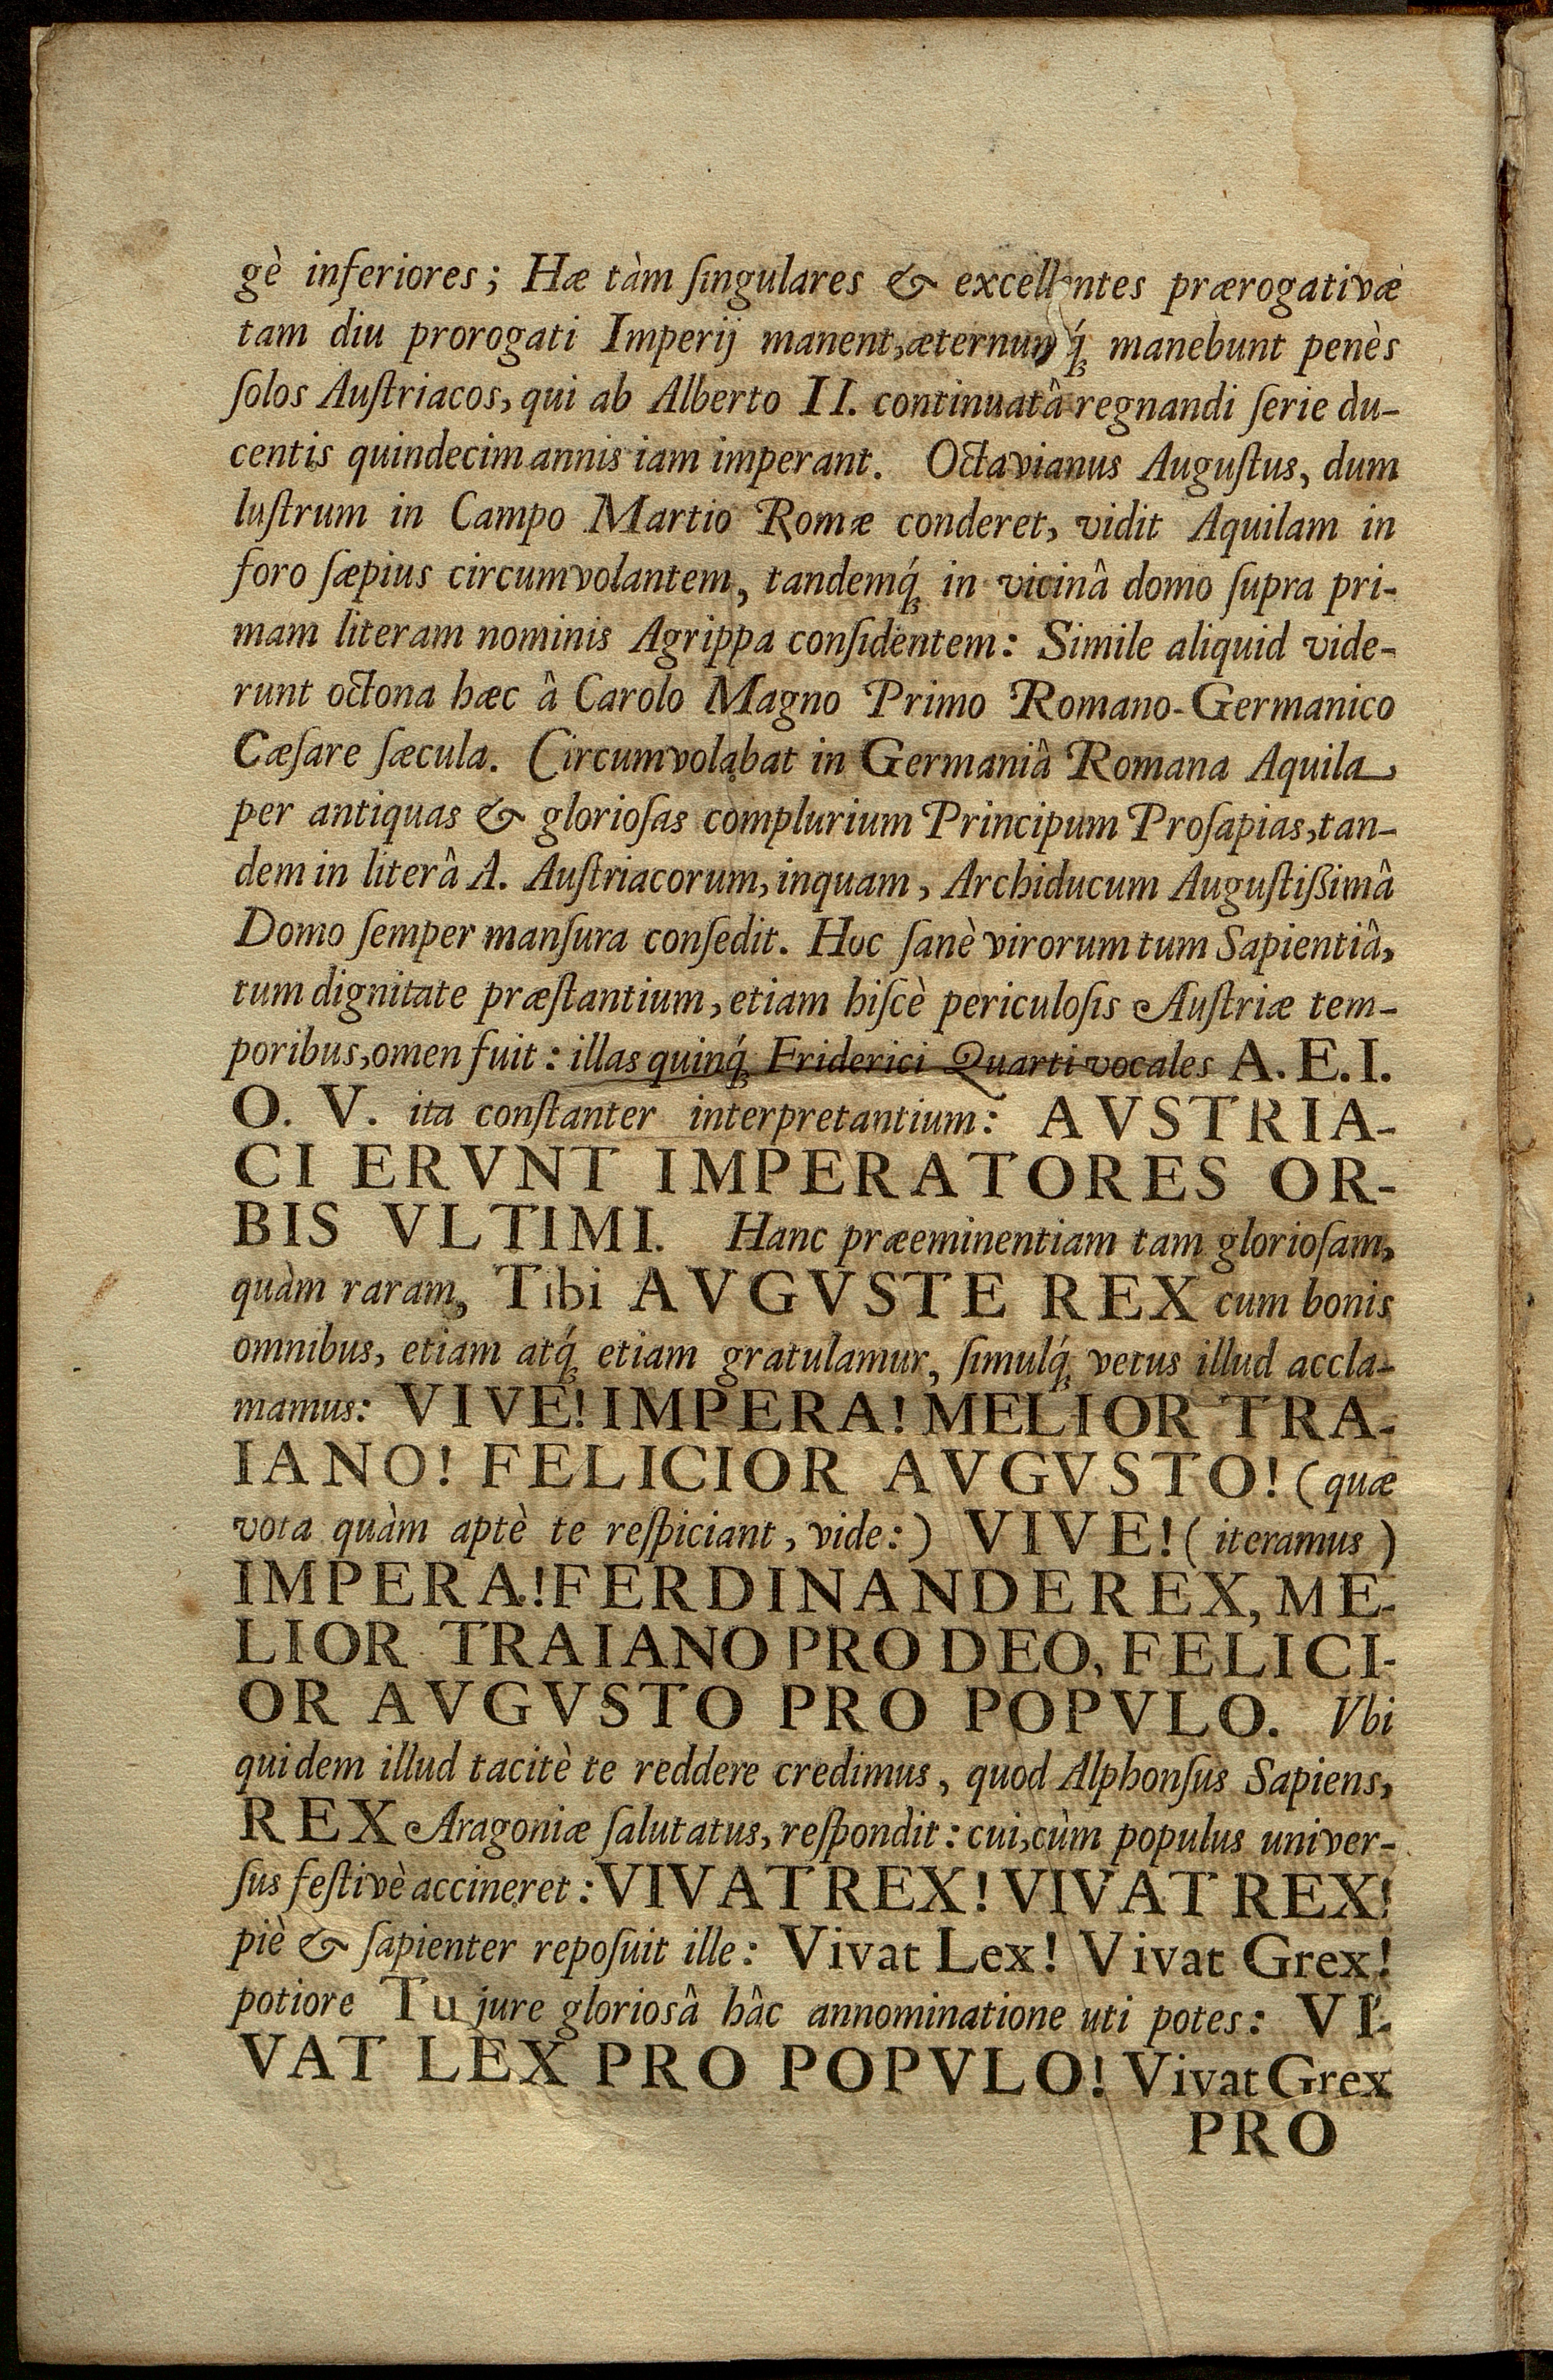 gè inferiores; Hæ tàm ſingulares & excellentes prærogativæ
tam diu prorogati Imperij manent, æternumq́ꝫ manebunt penès
ſolos Auſtriacos, qui ab Alberto II. continuatâ regnandi ſerie du-
centis quindecim annis iam imperant. Octavianus Auguſtus, dum
luſtrum in Campo Martio Romæ conderet, vidit Aquilam in
foro ſæpius circumvolantem, tandemq́ꝫ in vicinâ domo ſupra pri-
mam literam nominis Agrippa conſidentem: Simile aliquid vide-
runt octona hæc â Carolo Magno Primo Romano-Germanico
Cæſare ſæcula. Circumvolabat in Germaniâ Romana Aquila
per antiquas & glorioſas complurium Principum Proſapias, tan-
dem in literâ A. Auſtriacorum, inquam, Archiducum Auguſtiſsimâ
Domo ſemper manſura conſedit. Hoc ſanè virorum tum Sapientiâ,
tum dignitate præſtantium, etiam hiſcè periculoſis Auſtriæ tem-
poribus, omen fuit: illas quinq́ꝫ Friderici Quarti vocales A. E. I.
O. V. ita conſtanter interpretantium: AVSTRIA-
CI ERVNT IMPERATORES OR-
BIS VLTIMI. Hanc præeminentiam tam glorioſam,
quàm raram, Tibi AVGVSTE REX cum bonis
omnibus, etiam atq́ꝫ etiam gratulamur, ſimulq́ꝫ vetus illud accla-
mamus: VIVE! IMPERA! MELIOR TRA-
IANO! FELICIOR AVGVSTO! (quæ
vota quàm aptè te reſpiciant, vide:) VIVE! (iteramus)
IMPERA! FERDINANDE REX, ME-
LIOR TRAIANO PRO DEO, FELICI-
OR AVGVSTO PRO POPVLO. Vbi
quidem illud tacitè te reddere credimus, quod Alphonſus Sapiens,
REX Aragoniæ ſalutatus, reſpondit: cui, cùm populus univer-
ſus feſtivè accineret: VIVAT REX! VIVAT REX!
piè & ſapienter repoſuit ille: Vivat Lex! Vivat Grex!
potiore Tu jure glorioſâ hâc annominatione uti potes: VI-
VAT LEX PRO POPVLO! Vivat Grex
PRO